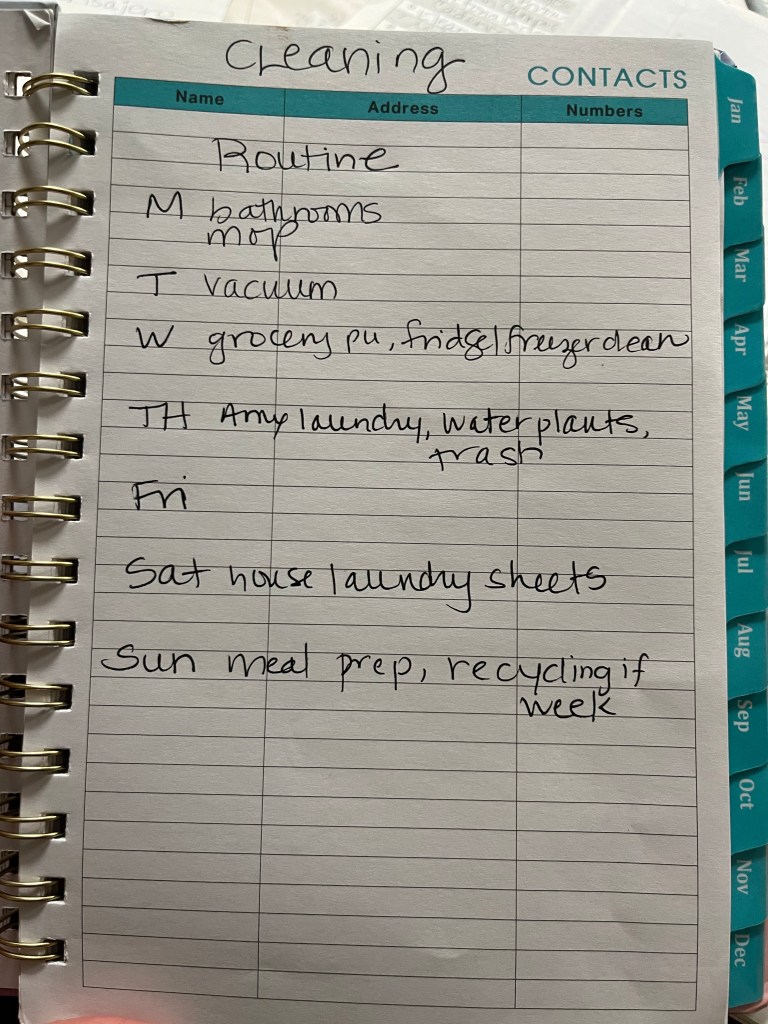 Cleaning
CONTACTS
Name Address Numbers
Routine
M bathrooms
mop
T vacuum
W grocery pu, fridge/freezer clean
TH Amy laundry, water plants,
trash
Fri
Sat house laundry sheets
Sun meal prep, recycling if
week
Jan
Feb
Mar
Apr
May
Jun
Jul
Aug
Sep
Oct
Nov
Dec